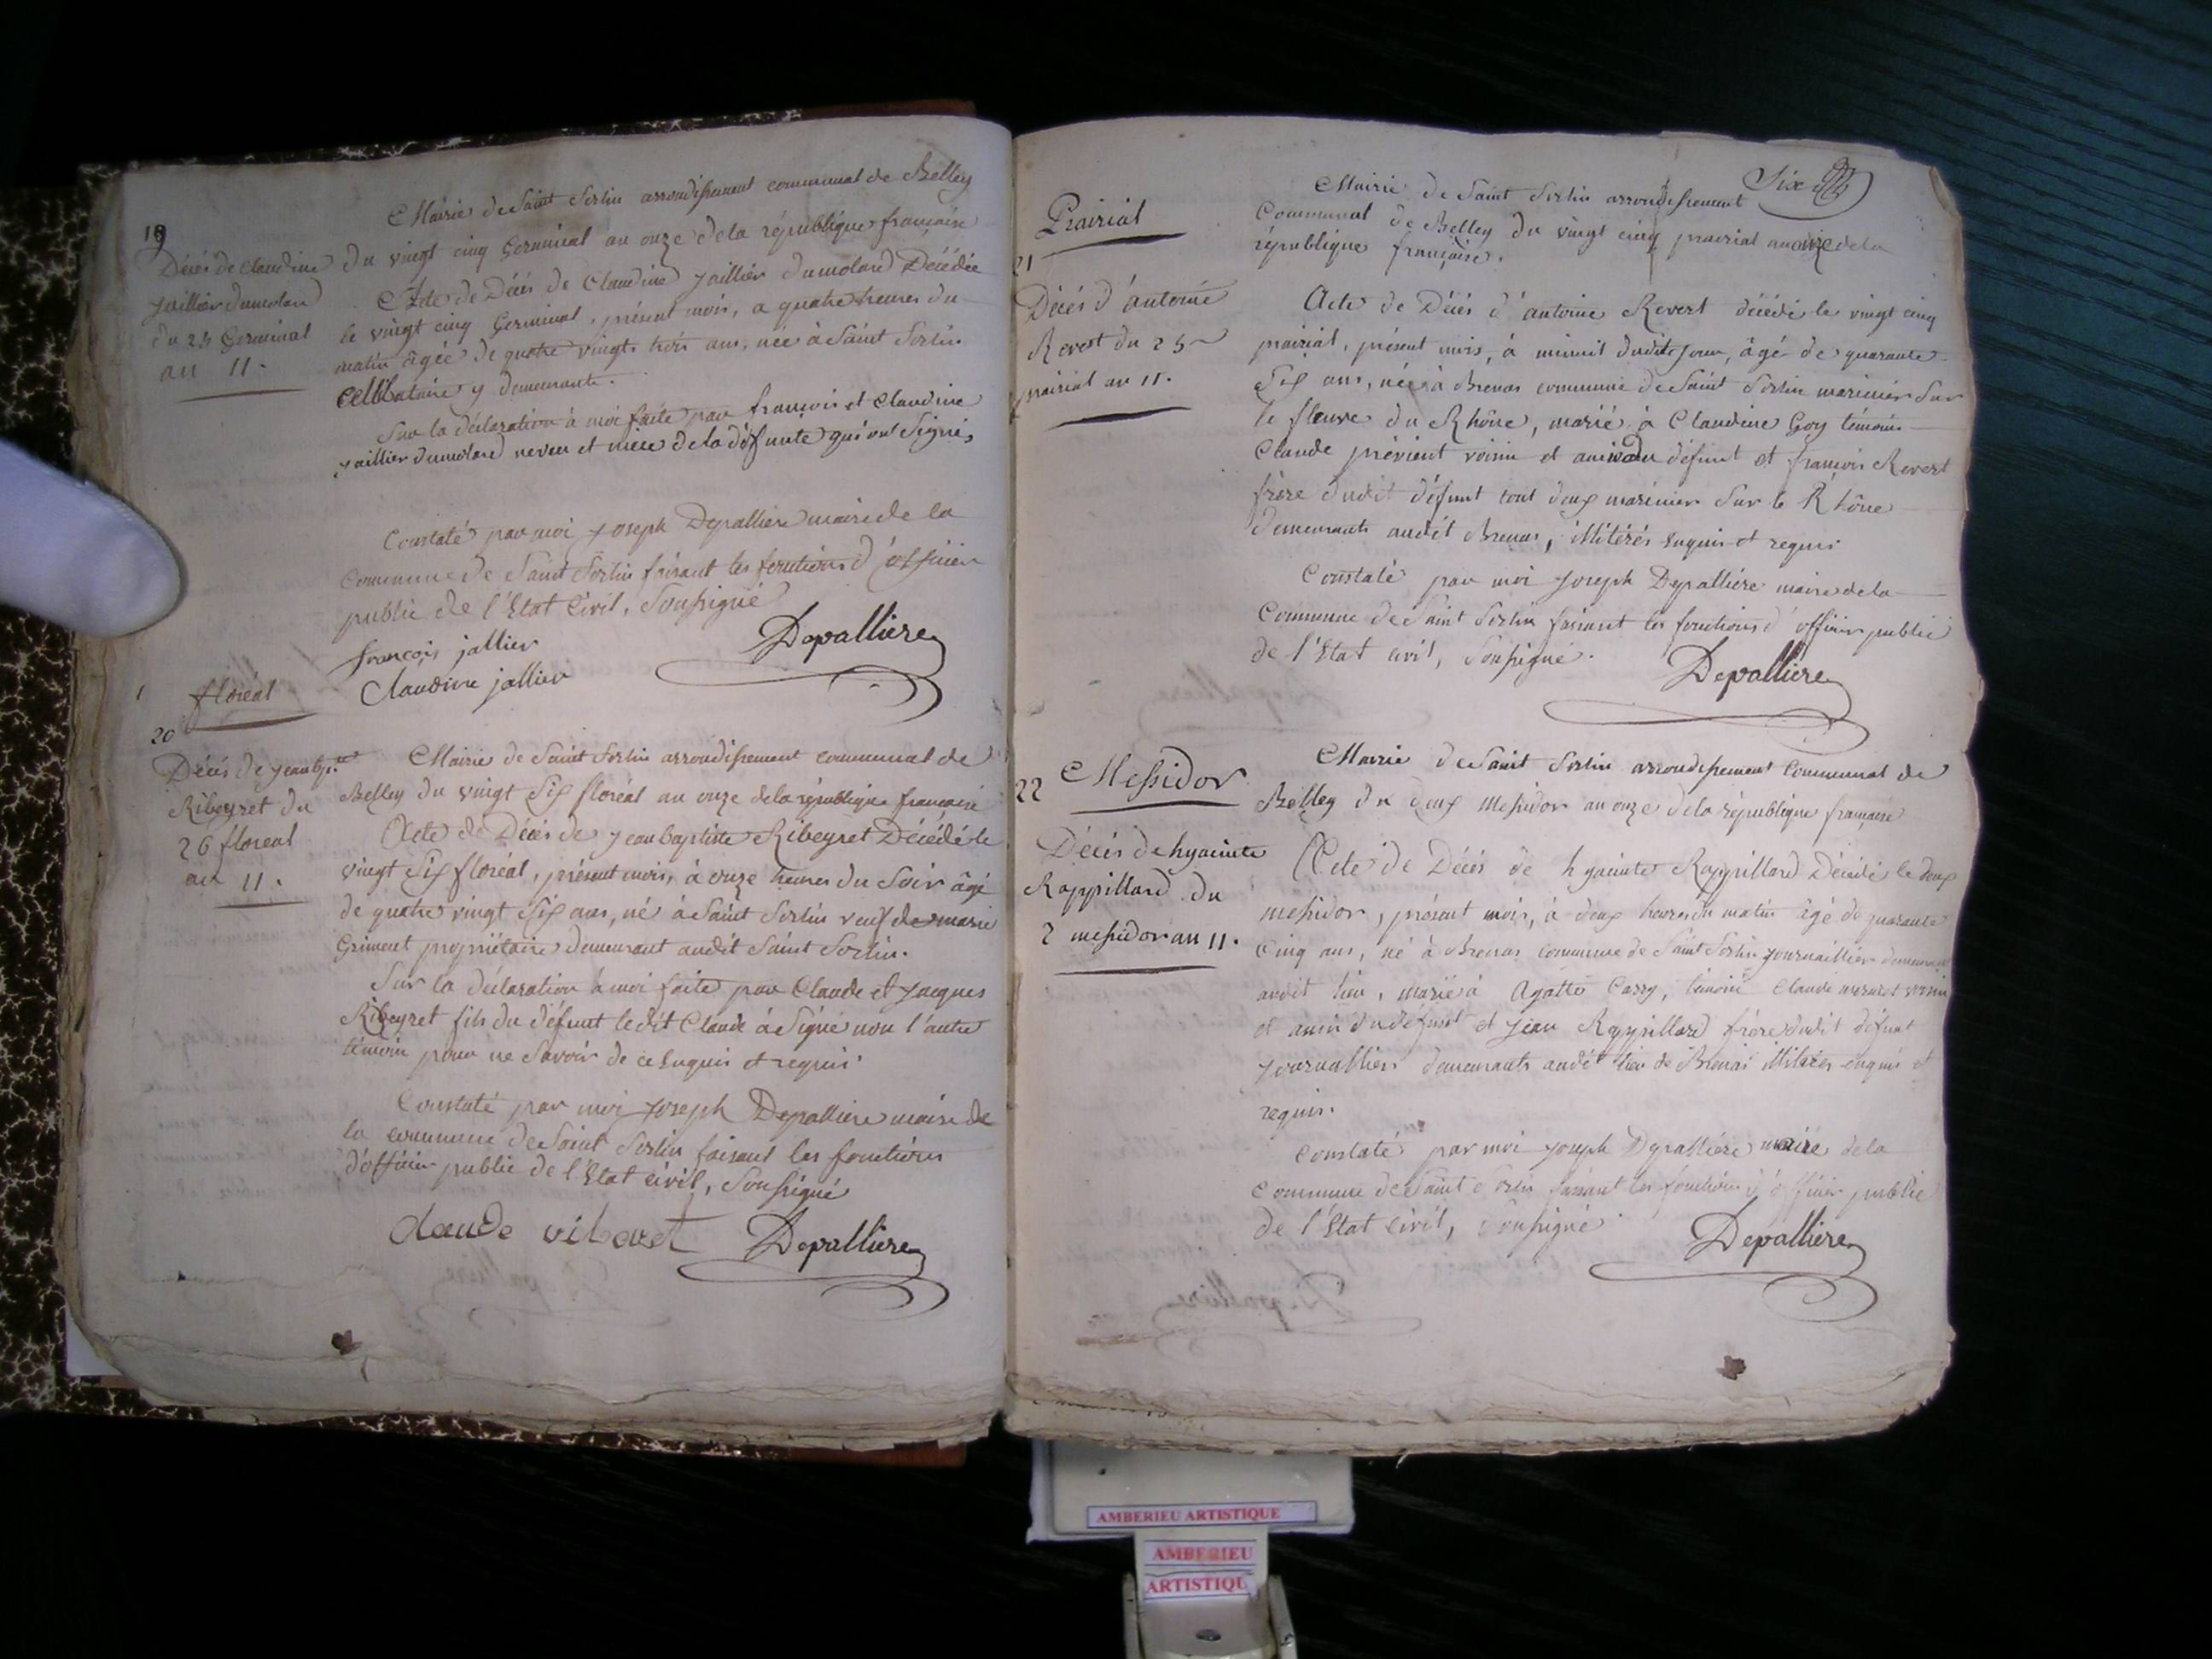 19
Décès de Claudine
jaillier dumolard
du 25 Germinal
an 11.
Mairie de Saint Sorlin arrondissement communal de Belley
du vingt cinq Germinal an onze de la république française
Acte de Décès de Claudine jaillier dumolard Décédée
le vingt cinq Germinal, présent mois, a quatre heures du
matin âgée de quatre vingt trois ans, née à Saint Sorlin
Célibataire y demeurante.
Sur la déclaration à moi faite par françois et Claudine
jaillier dumolard neveu et niece de la défunte qui ont Signés
Constaté par moi joseph Depalliere maire de la
Commune de Saint Sorlin faisant les fonctions d'officier
public de l'Etat Civil, Soussigné
françois jallier
Claudine jallier
Depalliere
floréal
20
Décès de jean bpte
Ribeyret du
26 floreal
an 11.
Mairie de Saint Sorlin arrondissement communal de
Belley du vingt Six floréal an onze de la république française
Acte de Décès de jean baptiste Ribeyret Décédé le
vingt Six floréal, présent mois, à onze heures du Soir âgé
de quatre vingt Six ans, né à Saint Sorlin veuf de marie
Griment propriétaire demeurant audit Saint Sorlin.
Sur la déclaration à moi faite par Claude et jacques
Ribeyret fils du défunt le dit Claude à Signé non l'autre
témoin pour ne Savoir de ce Enquis et requis.
Constaté par moi joseph Depalliere maire de
la commune de Saint Sorlin faisant les fonctions
d'officier public de l'Etat civil, Soussigné
claude
Depalliere
Six
Prairial
21
Décès d'antoine
Revert du 25
prairial an 11.
Mairie de Saint Sorlin arrondissement
Communal de Belley du vingt cinq prairial an onze de la
république française.
Acte de Décès d'antoine Revert décédé le vingt cinq
prairial, présent mois, à minuit dudit jour, âgé de quarante
Six ans, né à Brenas commune de Saint Sorlin marinier Sur
le fleuve du Rhône, marié à Claudine Goy témoins
Claude voisin et ami du défunt et françois Revert
frère dudit défunt tout deux marinier Sur le Rhône
demeurants audit Brenas, illitérés Enquis et requis
Constaté par moi joseph Depalliére maire de la
Commune de Saint Sorlin faisant les fonctions d'officier public
de l'Etat civil, Soussigné.
Depalliere
22
Messidor
Décès de hyacinte
Rappillard du
2 messidor an 11.
Mairie de Saint Sorlin arrondissement Communal de
Belley du deux Messidor an onze de la république française
Acte de Décès de hyacinte Rappillard Décédé le deux
messidor, présent mois, à deux heures du matin âgé de quarante
Cinq ans, né à Brenas commune de Saint Sorlin journaillier demeurant
audit lieu, marié à Agatte témoins Claude voisin
et ami du défunt et jean Rappillard frère dudit défunt
journalliers demeurants audit lieu de Brenas illitérés enquis et
requis.
Constaté par moi joseph Depalliére maire de la
Commune de Saint Sorlin faisant les fonctions d'officier public
de l'Etat civil, Soussigné.
Depalliere
AMBERIEU ARTISTIQUE
AMBERIEU
ARTISTIQU